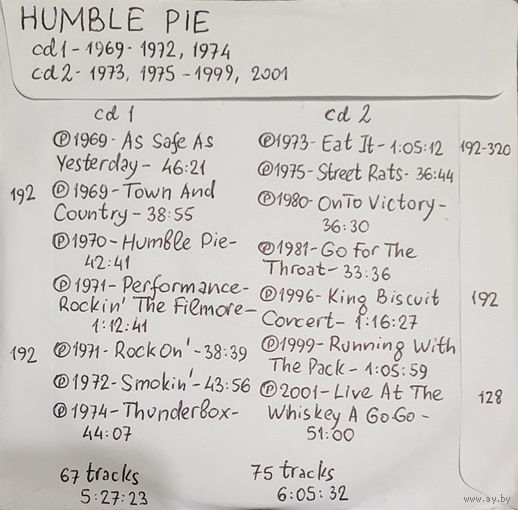 HUMBLE PIE
cd1 - 1969- 1972, 1974
cd2 - 1973, 1975 - 1999, 2001
cd 1
Ⓟ1969- As Safe As
Yesterday - 46:21
192 Ⓟ1969- Town And
Country - 38:55
Ⓟ1970- Humble Pie-
42:41
Ⓟ1971- Performance-
Rockin' The Filmore-
1:12:41
192 Ⓟ1971- Rock On' - 38:39
Ⓟ1972- Smokin' - 43:56
Ⓟ1974- Thunderbox-
44:07
67 tracks
5:27:23
cd 2
Ⓟ1973- Eat It - 1:05:12 192-320
Ⓟ1975- Street Rats- 36:44
Ⓟ1980- OnTo Victory-
36:30
Ⓟ1981- Go For The
Throat- 33:36
Ⓟ1996- King Biscuit 192
Concert- 1:16:27
Ⓟ1999- Running With
The Pack - 1:05:59
Ⓟ2001- Live At The 128
Whiskey A Go-Go -
51:00
75 tracks
6:05:32
www.ay.by